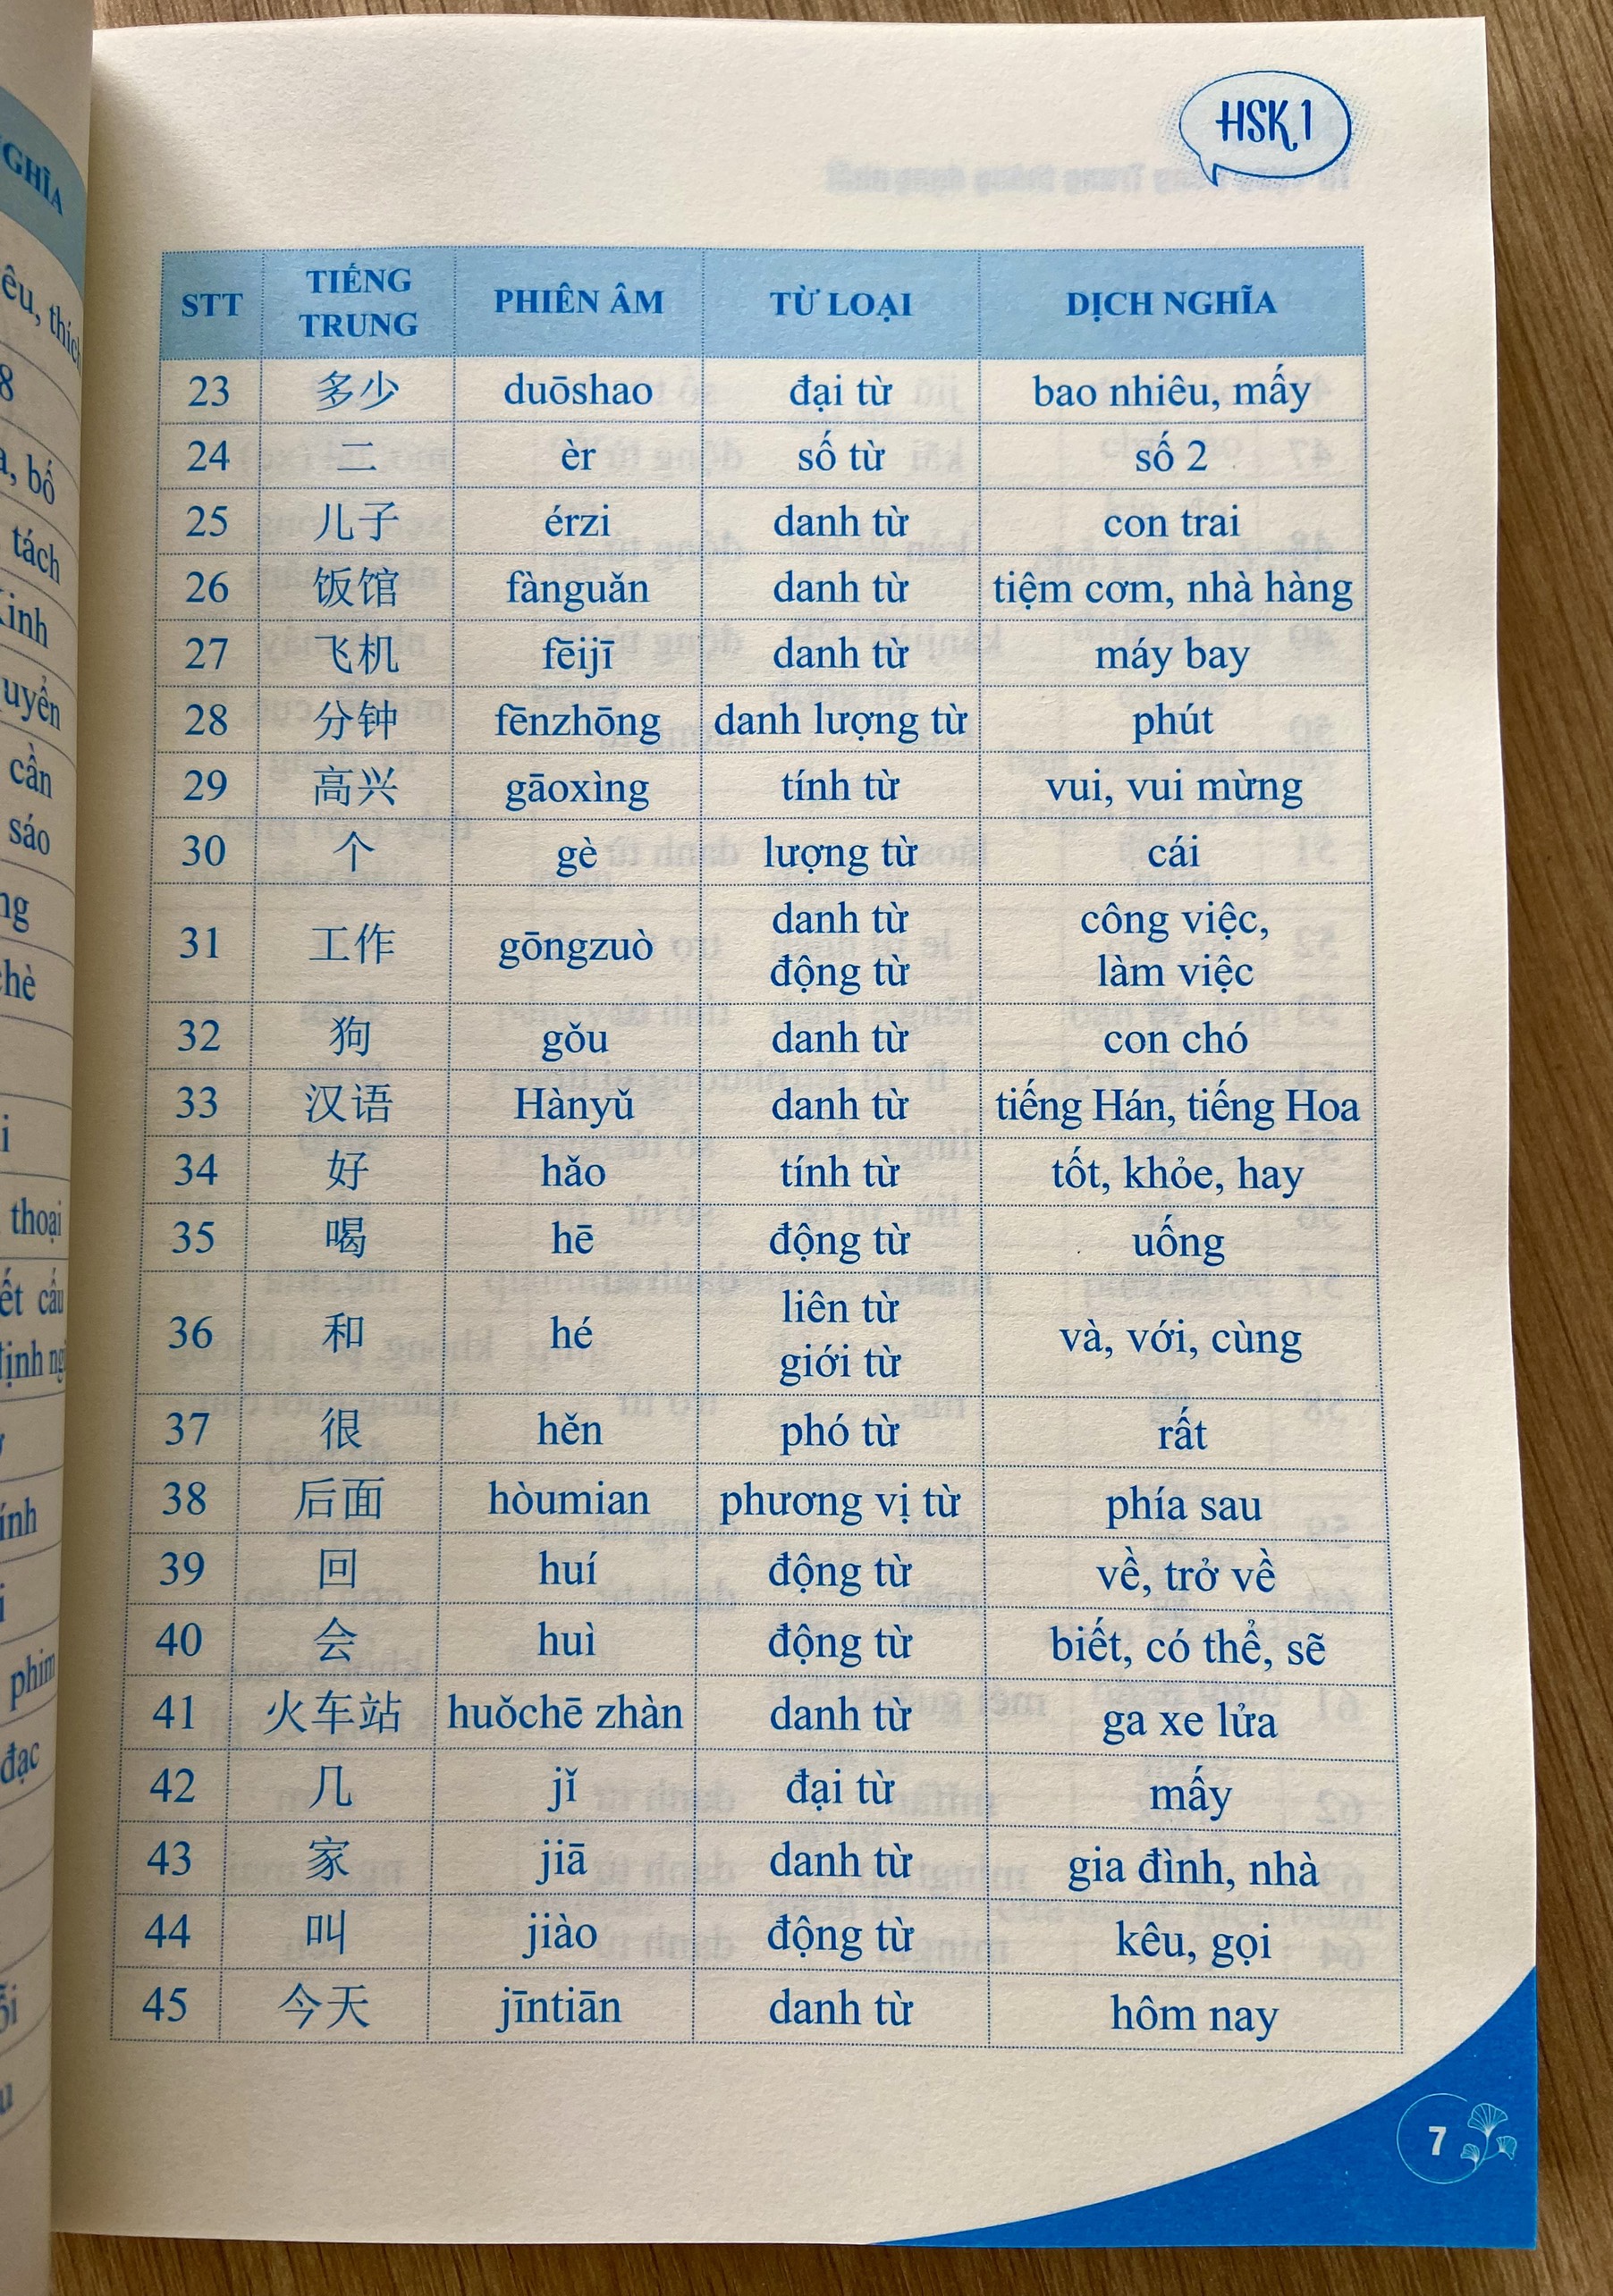 HSK 1
STT TIẾNG TRUNG PHIÊN ÂM TỪ LOẠI DỊCH NGHĨA
23 多少 duōshao đại từ bao nhiêu, mấy
24 二 èr số từ số 2
25 儿子 érzi danh từ con trai
26 饭馆 fànguǎn danh từ tiệm cơm, nhà hàng
27 飞机 fēijī danh từ máy bay
28 分钟 fēnzhōng danh lượng từ phút
29 高兴 gāoxìng tính từ vui, vui mừng
30 个 gè lượng từ cái
31 工作 gōngzuò danh từ động từ công việc, làm việc
32 狗 gǒu danh từ con chó
33 汉语 Hànyǔ danh từ tiếng Hán, tiếng Hoa
34 好 hǎo tính từ tốt, khỏe, hay
35 喝 hē động từ uống
36 和 hé liên từ giới từ và, với, cùng
37 很 hěn phó từ rất
38 后面 hòumian phương vị từ phía sau
39 回 huí động từ về, trở về
40 会 huì động từ biết, có thể, sẽ
41 火车站 huǒchē zhàn danh từ ga xe lửa
42 几 jǐ đại từ mấy
43 家 jiā danh từ gia đình, nhà
44 叫 jiào động từ kêu, gọi
45 今天 jīntiān danh từ hôm nay
7